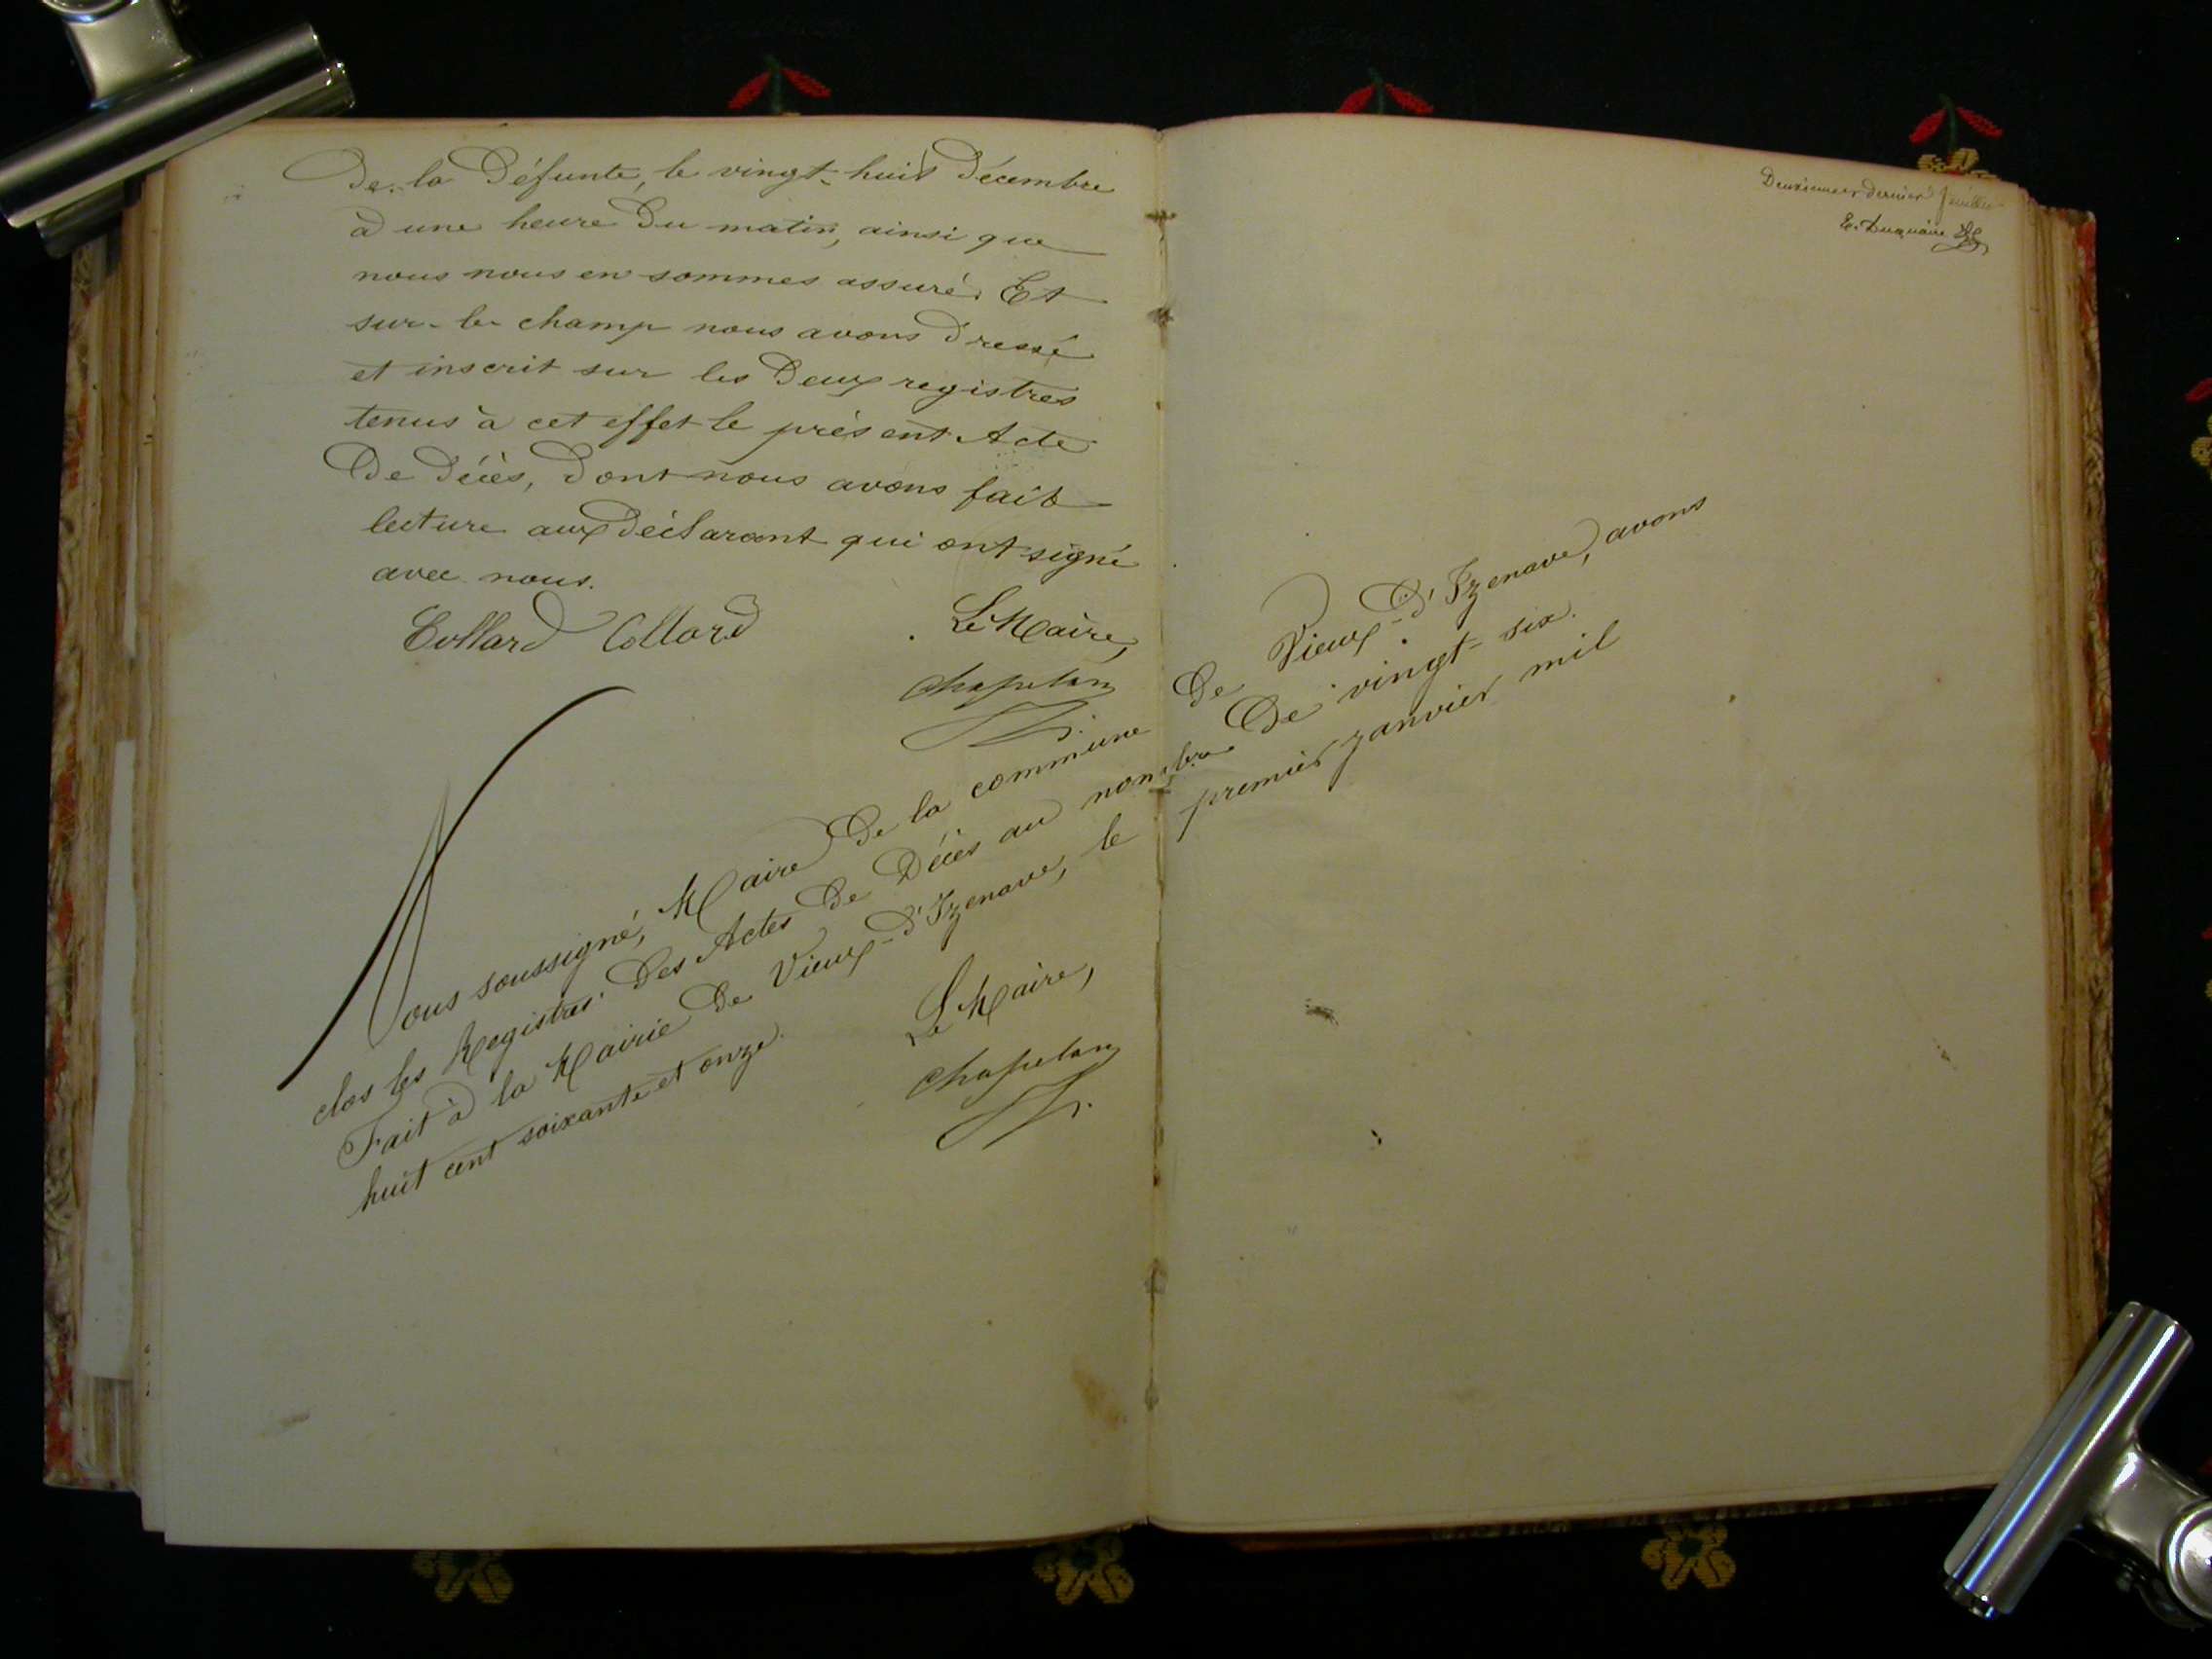 De la Défunte, le vingt-huit Décembre
à une heure du matin, ainsi que
nous nous en sommes assuré. Et
sur-le champ nous avons dressé
et inscrit sur les deux registres
tenus à cet effet le présent Acte
De Décès, dont nous avons fait
lecture aux déclarant qui ont signé
avec nous.
Collard Collard
Le Maire,
Chapelan
Nous soussigné, Maire de la commune de Vieux-d'Izenave, avons
clos les Registres des Actes de Décès au nombre de vingt-six.
Fait à la Mairie de Vieux-d'Izenave, le premier janvier mil
huit cent soixante et onze.
Le Maire,
Chapelan
Deuxième et dernier feuillet
E. Duquaire